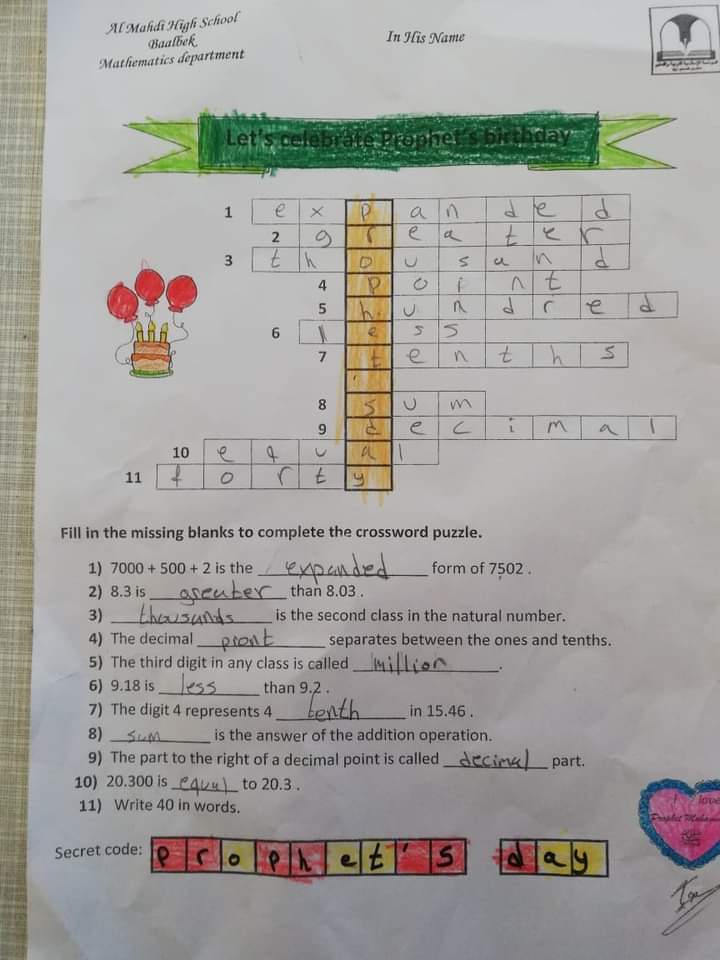 Al Mahdi High School
Baalbek
Mathematics department
In His Name
Let's celebrate Prophet's birthday
1 e x p a n d e d
2 g r e a t e r
3 t h o u s a n d
4 p o i n t
5 h u n d r e d
6 l e s s
7 t e n t h s
'
8 s u m
9 d e c i m a l
10 e q u a l
11 f o r t y
Fill in the missing blanks to complete the crossword puzzle.
1) 7000 + 500 + 2 is the expanded form of 7502 .
2) 8.3 is greater than 8.03 .
3) thousands is the second class in the natural number.
4) The decimal piont separates between the ones and tenths.
5) The third digit in any class is called million .
6) 9.18 is less than 9.2 .
7) The digit 4 represents 4 tenth in 15.46 .
8) sum is the answer of the addition operation.
9) The part to the right of a decimal point is called decimal part.
10) 20.300 is equal to 20.3 .
11) Write 40 in words.
I love
Prophet
Secret code: p r o p h e t ' s d a y